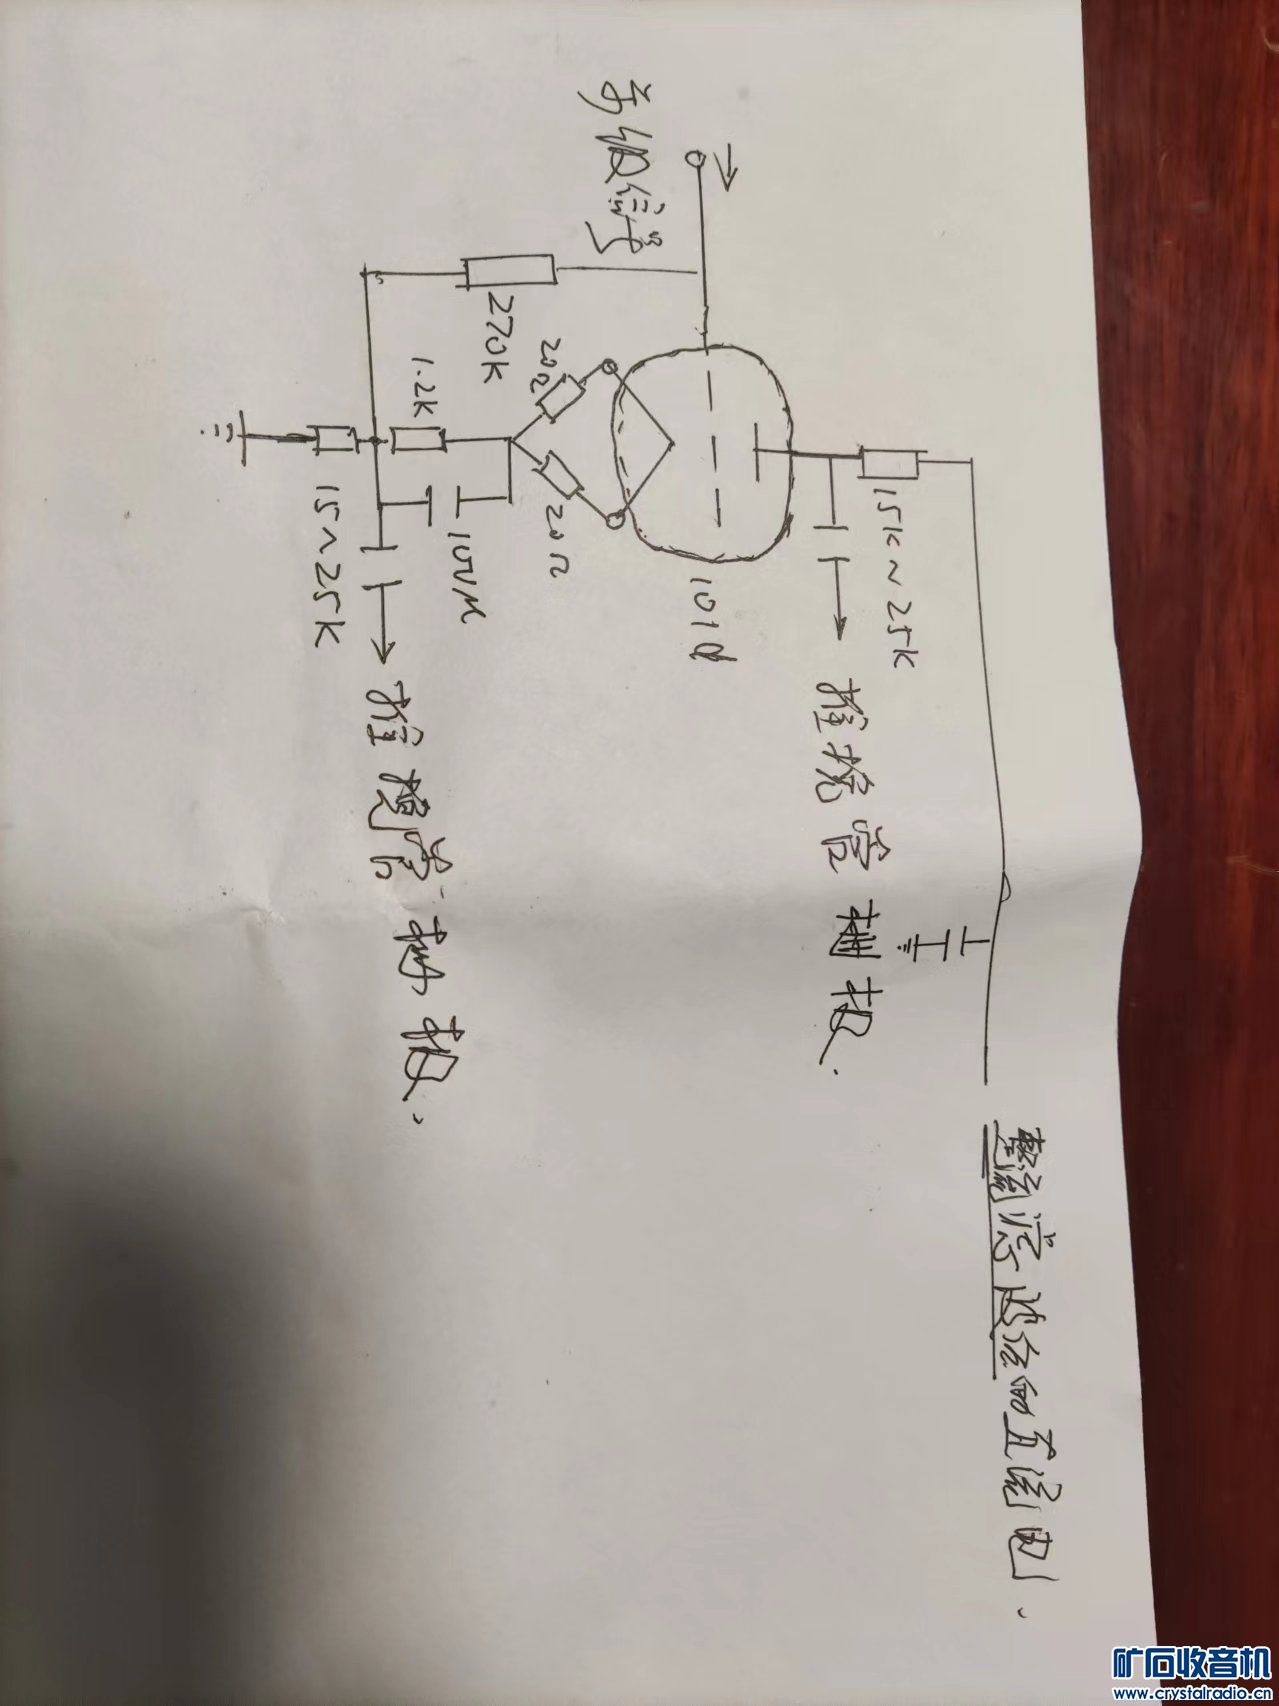 整流滤波后的直流电.
15K~25K
推挽管栅极.
101d
前级信号
20Ω
20Ω
270K
1.2K
10UM
推挽管栅极.
15~25K
矿石收音机
www.crystalradio.cn